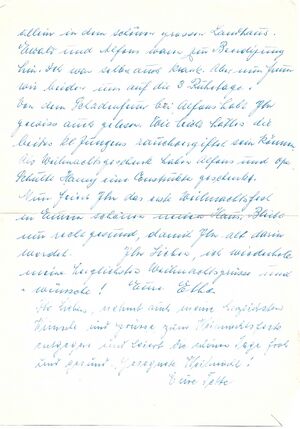 allein in dem schönen grossen Landhaus.
Ewald und Alfons waren zur Beerdigung
hin. Ich war selber auch krank. Aber nun freuen
wir beiden uns auf die 3 Ruhetage.
Von dem Schadenfeuer bei Alfons habt Ihr
gewiss auch gelesen. Wie leicht hätten die
beiden kl. Jungens rauchvergiftet sein können.
Als Weihnachtsgeschenk haben Alfons und Opa
Schulte Hansj eine Construkta geschenkt.
Nun feiert Ihr das erste Weihnachtsfest
in Eurem schönen neuen Haus. Bleibt
nur recht gesund, damit Ihr alt darin
werdet. Ihr Lieben, ich wiederhole
meine herzlichsten Weihnachtsgrüsse und
-wünsche! Eure Elka
Ihr Lieben, nehmt auch meine herzlichsten
Wünsche und Grüsse zum Weihnachtsfeste
entgegen und feiert die schönen Tage froh
und gesund. Gesegnete Weihnacht!
Eure Tette